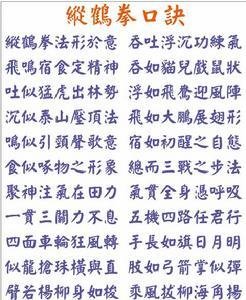 縱鶴拳口訣
縱鶴拳法形於意 吞吐浮沉功練氣
飛鳴宿食定精神 吞如貓兒戲鼠狀
吐似猛虎出林勢 浮如飛鷹迎風陣
沉似泰山壓頂法 飛如大鵬展翅形
鳴似引頸聲歌意 宿如初醒之自態
食似啄物之形象 總而三戰之步法
聚神注氣在田力 氣貫全身憑呼吸
一貫三關力不息 五機四路任君行
四面車輪狂風轉 手長如旗日月明
似龍搶珠橫與直 肢如弓箭掌似彈
臂若楊柳身如梭 乘風拔柳海角揚